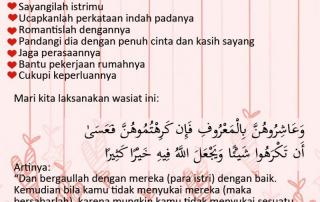 Sayangilah istrimu
Ucapkanlah perkataan indah padanya
Romantislah dengannya
Pandangi dia dengan penuh cinta dan kasih sayang
Jaga perasaannya
Bantu pekerjaan rumahnya
Cukupi keperluannya
Mari kita laksanakan wasiat ini:
وَعَاشِرُوهُنَّ بِالْمَعْرُوفِ فَإِن كَرِهْتُمُوهُنَّ فَعَسَىٰ
أَن تَكْرَهُوا شَيْئًا وَيَجْعَلَ اللَّهُ فِيهِ خَيْرًا كَثِيرًا
Artinya:
"Dan bergaullah dengan mereka (para istri) dengan baik.
Kemudian bila kamu tidak menyukai mereka (maka
bersabarlah), karena mungkin kamu tidak menyukai sesuatu